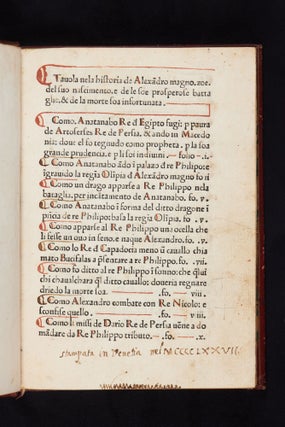 Tauola nela historia de Alexādro magno. zoe.
del suo nascimento. e de le soe prosperose batta
glie: & de la morte soa infortunata.
Como. Anatanabo Re d Egipto fugi: p paura
de Artoserses Re de Persa. & ando in Macedo
nia: doue el fo tegnudo como propheta. p la soa
grande prudencia. e p li soi indiuini. folio .i.
Como Anatanabo ādo ī palazo d re Philipo & 
īgrauido la regīa Olīpia d Alexandro magno fo .ii
Como un drago apparse a Re Philippo nela
bataglia. per incātamento de Anatanabo. fo. v.
Como Anatanabo ī forma del ditto dragone ī
p̄sēcia de re Philipo: basa la regīa Olīpia. fo. v.
Como apparse al Re Philippo una ocella che
li fesse un ouo in seno. e naque Alexandro. fo. v.
Como lo Re d Capadocia meno ū cauallo chia
mato Bucifalas a p̄sentare a re Philippo. fo. vii.
Como fo ditto al re Philippo ī sonno: che q̄lui
chi chaualchara q̄l ditto cauallo: douera regnare
driedo la morte soa. fo. viii.
Como Alexandro combate con Re Nicolo: e
sconfise quello. fo. viii.
Como li missi de Dario Re de Persa uēne a do
mādare da Re Philippo tributo. .fo. .x.
stampata in Venetia nel MCCCCLXXVII.